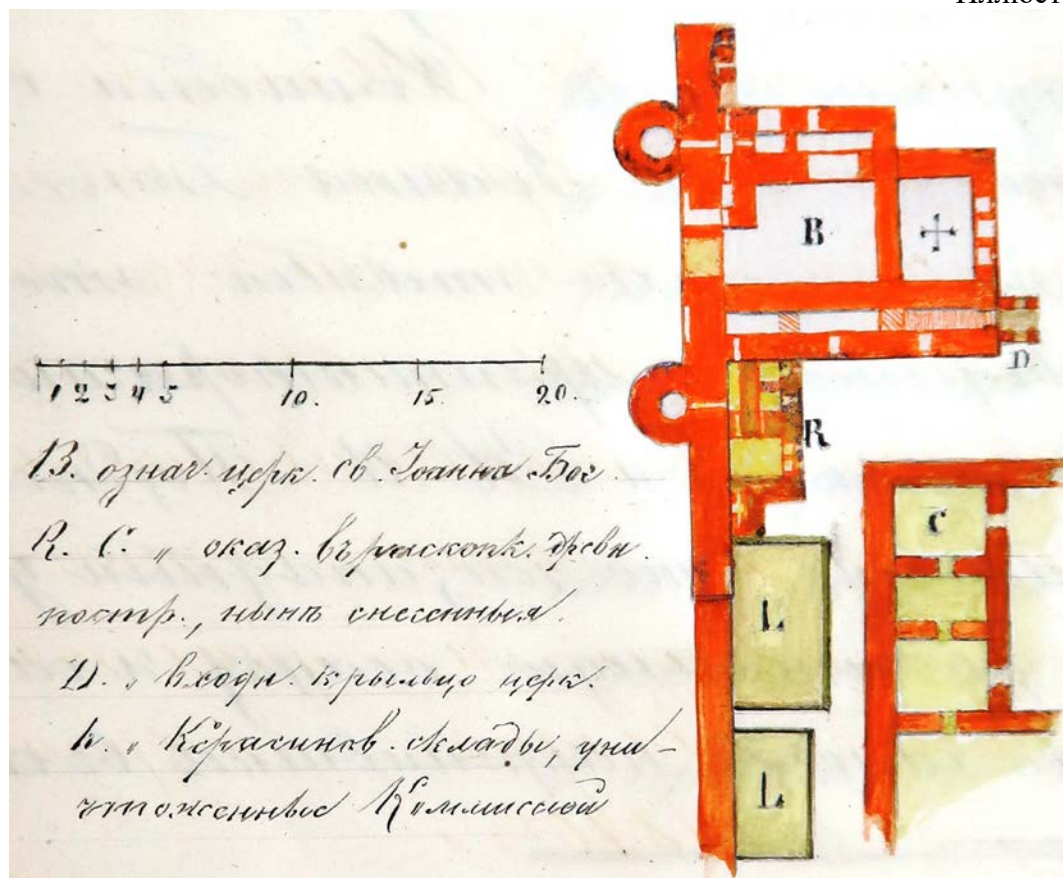 Иллюст
1 2 3 4 5 10. 15. 20.
В. означ. церк. св. Іоанна Бог.
R. С. " оказ. въ раскопк. древн.
постр., нынѣ снесенныя.
D. " входн. крыльцо церк.
L. " Керасинов. склады, уни-
чтоженные Коммиссіей
B
D
R
C
L
L